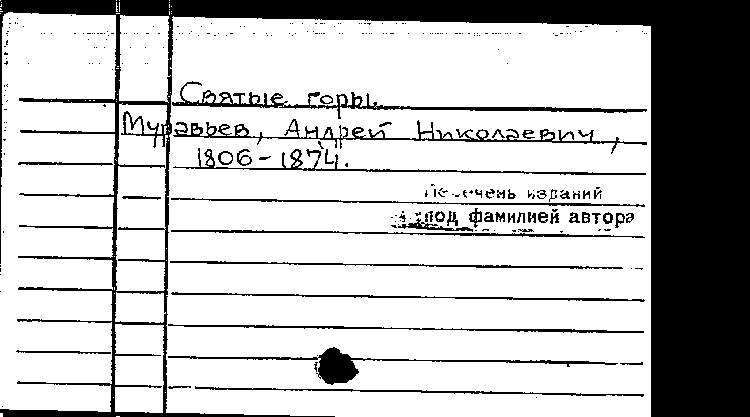 Святые горы.
Муравьев, Андрей Николаевич,
1806-1874.
Перечень изданий
под фамилией автора